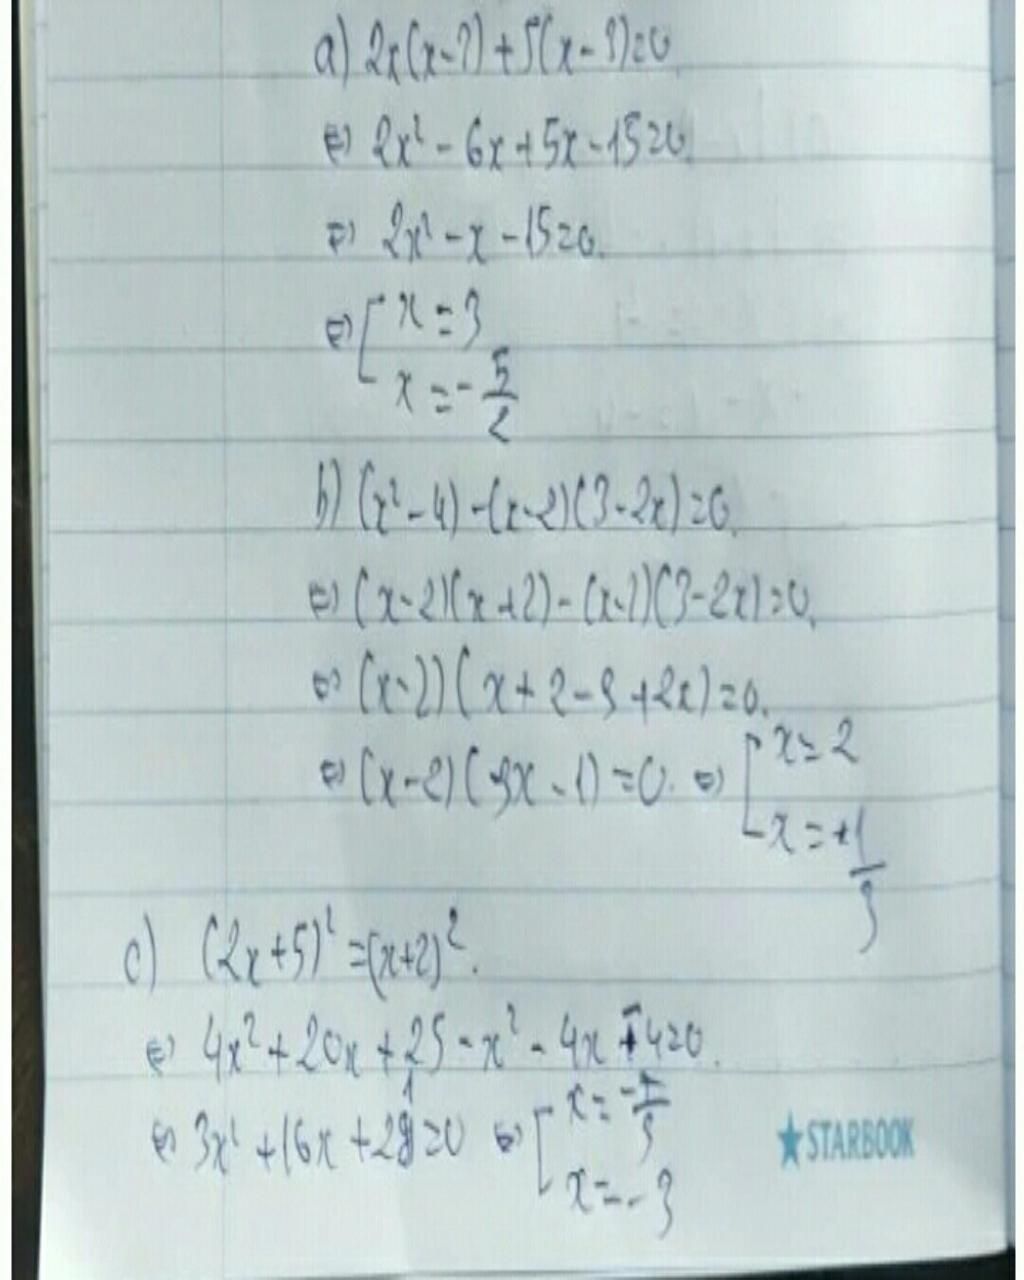 a) 2x(x-3)+5(x-3)=0
⇔ 2x² - 6x + 5x - 15 = 0
⇔ 2x² - x - 15 = 0.
⇔ [ x = 3
x = -5/2
b) (x² - 4) - (x-2)(3-2x) = 0.
⇔ (x-2)(x+2) - (x-2)(3-2x) = 0.
⇔ (x-2)(x+2-3+2x) = 0.
⇔ (x-2)(3x-1) = 0. ⇔ [ x = 2
x = +1/3
c) (2x+5)² = (x+2)².
⇔ 4x² + 20x + 25 - x² - 4x - 4 = 0.
⇔ 3x² + 16x + 21 = 0 ⇔ [ x = -7/3
x = -3
STARBOOK